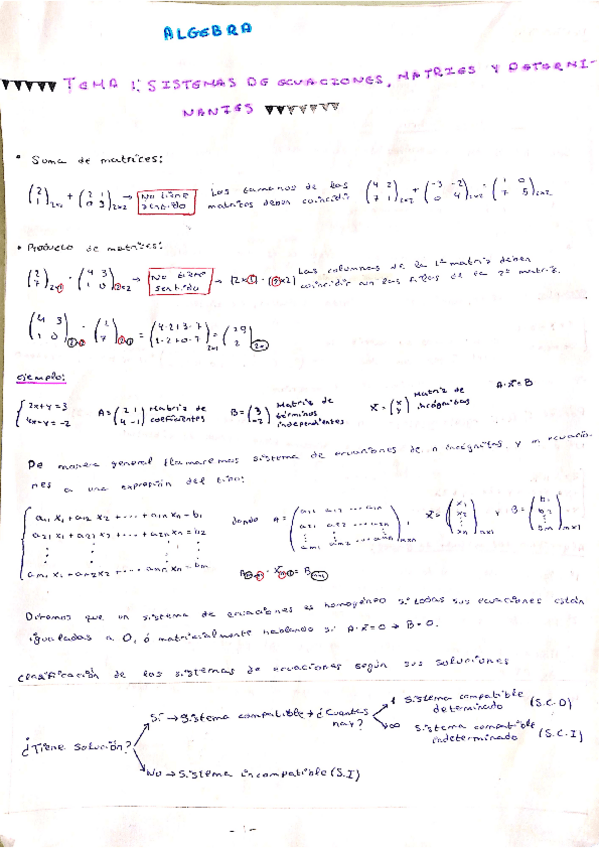 ALGEBRA
TEMA 1: SISTEMAS DE ECUACIONES, MATRICES Y DETERMI-
NANTES
• Suma de matrices:
(2 1)2x1 + (2 1 0 3)2x2 → No tiene sentido Los tamaños de las matrices deben coincidir (4 2 7 1)2x2 + (-3 -2 0 4)2x2 = (1 0 7 5)2x2
• Producto de matrices:
(2 7)2x1 · (4 3 1 0)2x2 → No tiene sentido → (2x1) · (2x2) Las columnas de la 1ª matriz deben coincidir con las filas de la 2ª matriz.
(4 3 1 0)2x2 · (2 7)2x1 = (4·2+3·7 1·2+0·7)2x1 = (29 2)2x1
ejemplo:
{2x+y=3 4x-y=-2 A=(2 1 4 -1) Matriz de coeficientes B=(3 -2) Matriz de términos independientes X=(x y) Matriz de incógnitas A·X=B
De manera general llamaremos sistema de ecuaciones de n incógnitas, y m ecuacio-
nes a una expresión del tipo:
a11 x1 + a12 x2 + ··· + a1n xn = b1
a21 x1 + a22 x2 + ··· + a2n xn = b2
am1 x1 + am2 x2 + ··· amn xn = bm
donde A=(a11 a12 ··· a1n a21 a22 ··· a2n am1 am2 ··· amn)mxn, X=(x1 x2 xn)nx1 y B=(b1 b2 bm)mx1
Amxn · Xnx1 = Bmx1
Diremos que un sistema de ecuaciones es homogéneo si todas sus ecuaciones están
igualadas a 0, ó matricialmente hablando si A·X=0 → B=0.
Clasificación de los sistemas de ecuaciones según sus soluciones
¿Tiene solución?
Sí → Sistema compatible → ¿Cuantas hay?
1 Sistema compatible determinado (S.C.D)
∞ Sistema compatible indeterminado (S.C.I)
No → Sistema incompatible (S.I)
-1-